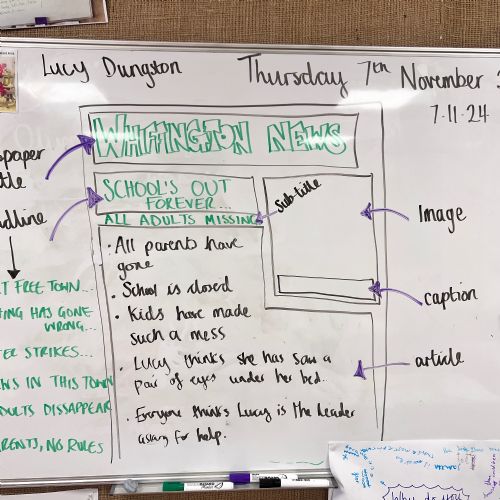 Lucy Dungston
Thursday 7th November
7.11.24
WHIFFINGTON NEWS
SCHOOL'S OUT
FOREVER...
ALL ADULTS MISSING
Sub-title
Image
caption
article
· All parents have
gone
· School is closed
· Kids have made
such a mess
· Lucy thinks she has saw a
pair of eyes under her bed.
· Everyone thinks Lucy is the leader
asking for help.
FREE TOWN...
HAS GONE
WRONG...
STRIKES...
IN THIS TOWN
DISSAPPEAR
NO RULES